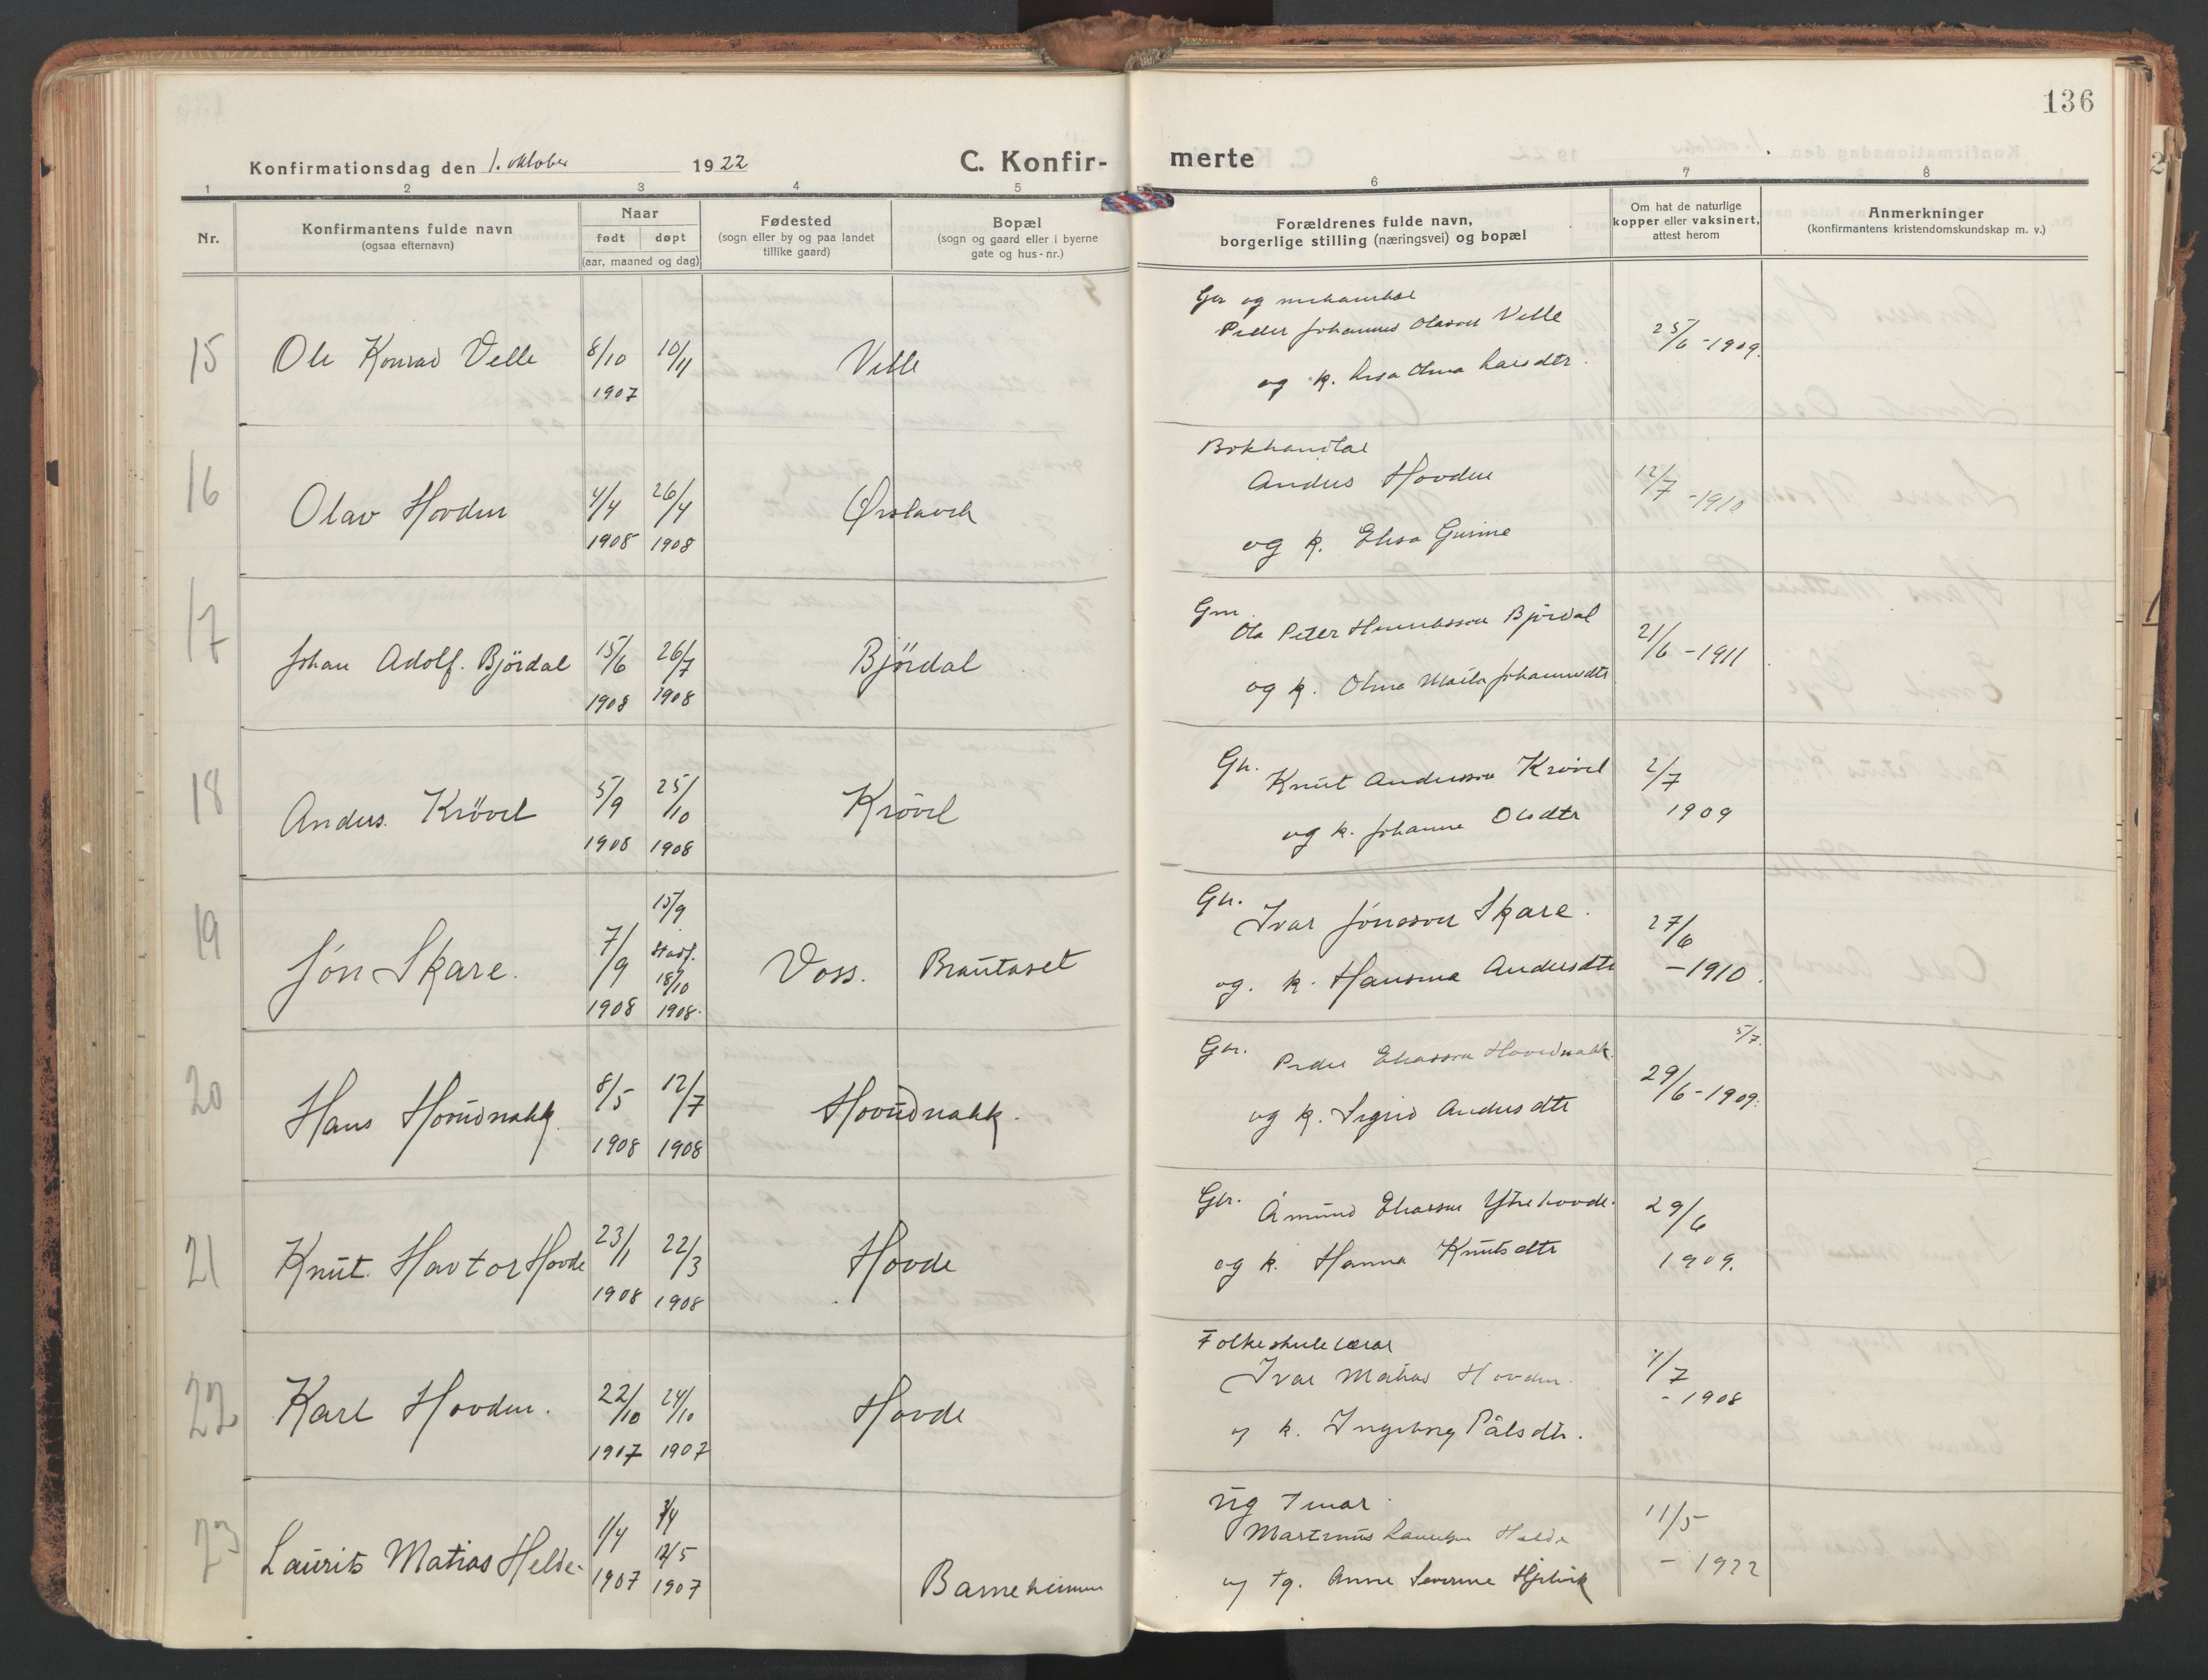 136
Konfirmationsdag den 1. oktober 1922
C. Konfir-
merte
1 2 3 4 5 6 7 8
Nr.
Konfirmantens fulde navn
(ogsaa efternavn)
Naar
født døpt
(aar, maaned og dag)
Fødested
(sogn eller by og paa landet
tillike gaard)
Bopæl
(sogn og gaard eller i byerne
gate og hus-nr.)
Forældrenes fulde navn,
borgerlige stilling (næringsvei) og bopæl
Om hat de naturlige
kopper eller vaksinert,
attest herom
Anmerkninger
(konfirmantens kristendomskundskap m. v.)
15 Ole Konrad Velle 8/10 1907 10/11 Velle
Peder Johannes Olason Velle
og k. Olina Larsdtr.
25/6 - 1909.
16 Olav Hovden 4/4 1908 26/4 1908 Ørstavik
Bokhandlar
Anders Hovden
og k. Elisa Gurine
12/7 - 1910
17 Johan Adolf Björdal 15/6 1908 26/7 1908 Björdal
Gm.
Ola Peter Henriksson Björdal
og k. Olina Maria Johannesdtr
21/6 - 1911
18 Anders Krövel 5/9 1908 25/10 1908 Krövel
Gbr.
Knut Andersson Krövel
og k. Johanne Olsdtr
2/7
1909
19 Jón Skare. 7/9 1908 15/9 Stadf. 18/10 1908. Voss. Brautaset
Gbr.
Ivar Jónsson Skare.
og. k. Hansina Andersdtr
27/6
- 1910.
20 Hans Hovudnakk. 8/5 1908 12/7 1908 Hovudnakk.
Gbr. Peder Eliasson Hovudnakk.
og k. Sigrid Andersdtr
5/7.
29/6 - 1909.
21 Knut Havtor Hovde 23/1 1908 22/3 1908 Hovde
Gbr. Åmund Eliasson Ytrehovde.
og k. Hanna Knutsdtr
29/6
1909.
22 Karl Hovden. 22/10 1907 24/10 1907 Hovde
Folkeskulelærar
Ivar Matias Hovden.
og k. Ingeborg Pålsdtr.
1/7
- 1908
23 Laurits Matias Helde 1/4 1907 3/4 12/5 1907 Barneheimen
Ug
Martinus Lauritsen Helde
og Tg. Anne Severine
11/5
- 1922